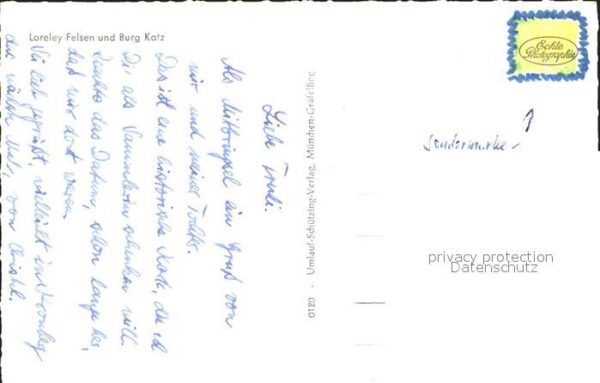 Loreley-Felsen und Burg Katz
Liebe Trudi.
Als ein Gruß von
mir und meiner
Das ist eine historische Karte, die ich
Dir als Sammlerin schenken will.
das Datum, schon lange her,
daß wir dort waren.
Sei lieb gegrüßt, vielleicht in
das nächste Mal, von
0120 · Umlauf-Schützing-Verlag, München-Gräfelfing
Echte
Photographie
Sondermarke
privacy protection
Datenschutz